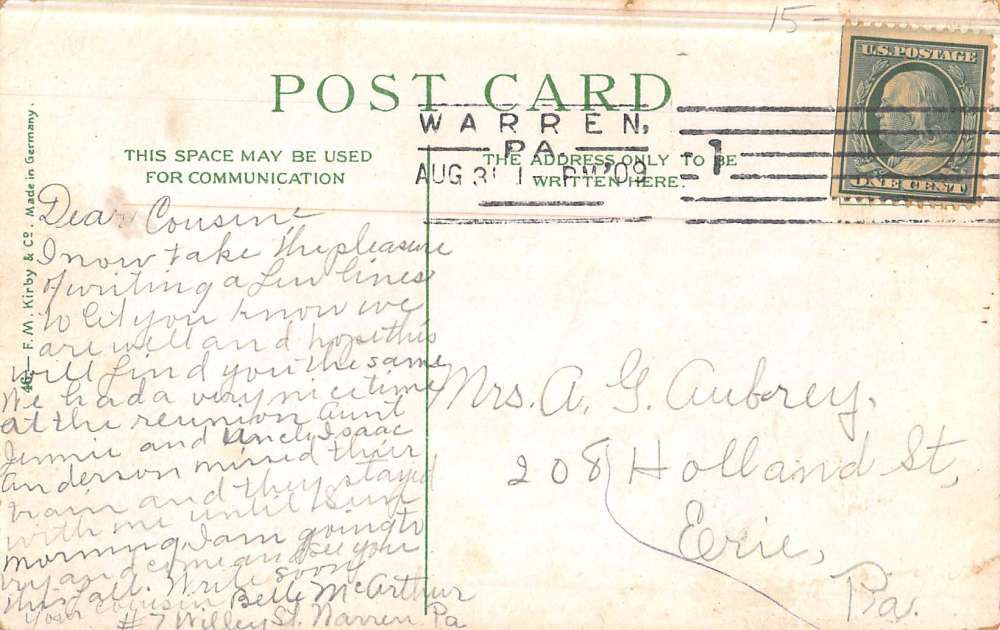 15-
U.S. POSTAGE
ONE CENT
POST CARD
WARREN,
PA.
AUG 31 1 - PM '09
1
THIS SPACE MAY BE USED
FOR COMMUNICATION
THE ADDRESS ONLY TO BE
WRITTEN HERE.
46 — F. M. Kirby & Co. Made in Germany.
Dear Cousin,
I now take the pleasure
of writing a few lines
to let you know we
are well and hope this
will find you the same
We had a very nice time
at the reunion Aunt
Jennie and Uncle Isaac
Anderson missed their
train and they stayed
with me until Sun
morning. I am going to
try and come and see you
this fall. Write soon
your cousin Belle McArthur
#7 Willey St. Warren Pa
Mrs. A. G. Aubrey.
208 Holland St,
Erie,
Pa.